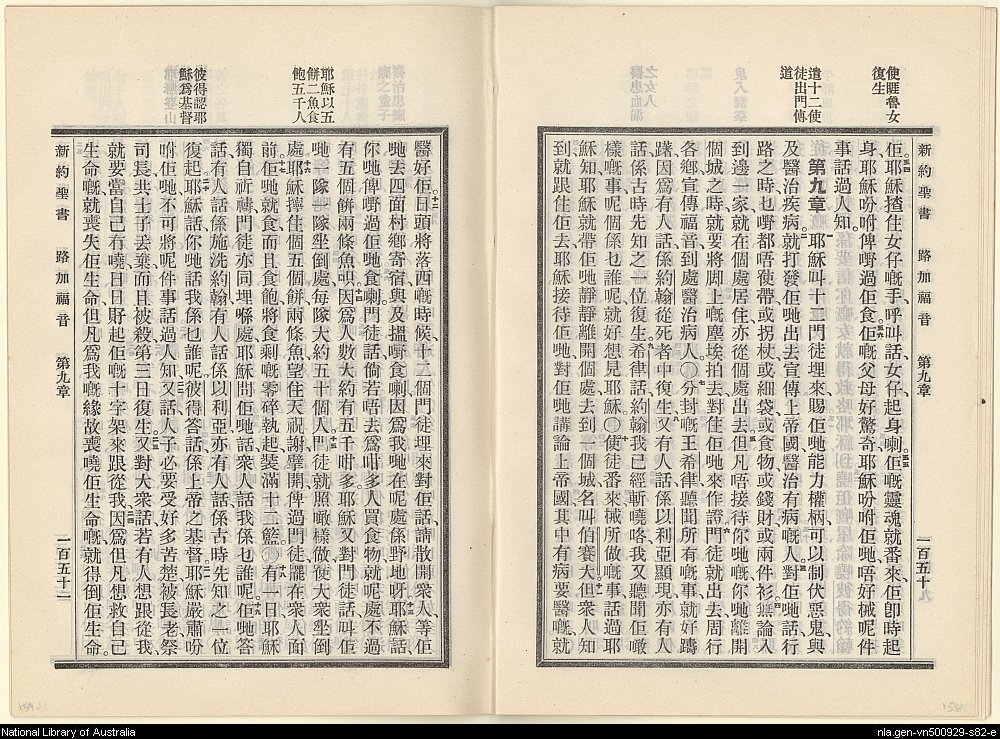 新約聖書 路加福音 第九章
佢耶穌揸住女仔嘅手呼叫話女仔起身喇佢嘅靈魂就番來佢卽時起
身耶穌吩咐俾嘢過佢食佢嘅父母好驚奇耶穌吩咐佢哋唔好械呢件
事話過人知
第九章 耶穌叫十二門徒埋來賜佢哋能力權柄可以制伏惡鬼與
及醫治疾病就打發佢哋出去宣傳上帝國醫治有病嘅人對佢哋話行
路之時乜嘢都唔使帶或拐杖或細袋或食物或錢財或兩件衫無論入
到邊一家就在個處居住亦從個處出去但凡唔接待你哋嘅你哋離開
個城之時就要將脚上嘅塵埃拍去對住佢哋來作證門徒就出去周行
各鄉宣傳福音到處醫治病人〇分封嘅王希律聽聞所有嘅事就好躊
躇因爲有人話係約翰從死者中復生又有人話係以利亞顯現亦有人
話係古時先知之一位復生希律話約翰我已經斬嘵咯我又聽聞佢噉
樣嘅事呢個係乜誰呢就好想見耶穌〇使徒番來械所做嘅事話過耶
穌知耶穌就帶佢哋靜靜離開個處去到一個城名叫伯賽大但衆人知
到就跟住佢去耶穌接待佢哋對佢哋講論上帝國其中有病要醫嘅就
使睚魯女
復生
遣十二使
徒出門傳
道
醫好佢日頭將落西嘅時候十二個門徒埋來對佢話請散開衆人等佢
哋去四面村鄉寄宿與及揾嘢食喇因爲我哋在呢處係野地呀耶穌話
你哋俾嘢過佢哋食喇門徒話倘若唔去爲咁多人買食物就呢處不過
有五個餅兩條魚呮因爲人數大約有五千咁多耶穌又對門徒話叫佢
哋一隊一隊坐倒處每隊大約五十個人門徒就照噉樣做使大衆坐倒
處耶穌擰住個五個餅兩條魚望住天祝謝擘開俾過門徒擺在衆人面
前佢哋就食而且食飽將食剩嘅零碎執起裝滿十二籃〇有一日耶穌
獨自祈禱門徒亦同埋喺處耶穌問佢哋話衆人話我係乜誰呢佢哋答
話有人話係施洗約翰有人話係以利亞亦有人話係古時先知之一位
復起耶穌話你哋話我係乜誰呢彼得答話係上帝之基督耶穌嚴肅吩
咐佢哋不可將呢件事話過人知又話人子必要受好多苦楚被長老祭
司長共士子丟棄而且被殺第三日復生又對大衆話若有人想跟從我
就要當自己冇嘵日日賙起佢嘅十字架來跟從我因爲但凡想救自己
生命嘅就喪失佢生命但凡爲我嘅緣故喪嘵佢生命嘅就得倒佢生命
新約聖書 路加福音 第九章 一百五十二
耶穌以五
餅二魚食
飽五千人
彼得認耶
穌爲基督
National Library of Australia
nla.gen-vn500929-s82-e